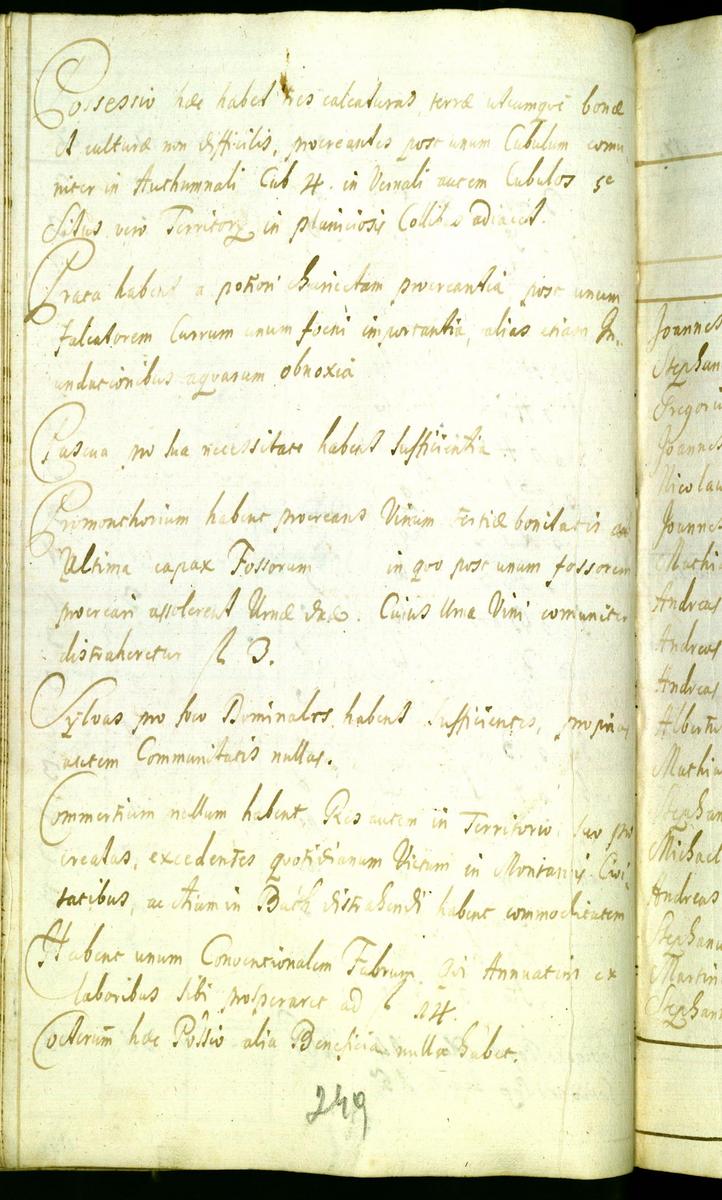 Possessio hæc habet tres calcaturas, terræ utcumque bonæ
et culturæ non difficilis, procreantes post unum Cubulum comu
niter in Authumnali Cub 4. in Vernali autem Cubulos 5
Situs vero Territory in planiciosis Collibus adiacet.
Prata habent a potiori procreantia post unum
falcatorem Currum unum foeni importantia, alias etiam In-
undationibus aquarum obnoxia
Pascua pro sua necessitate habent sufficientia
Promonthorium habent procreans Vinum tertiæ bonitatis
Ultima capax Fossorum in quo post unum fossorem
procreari assolerent Urnæ duæ. Cuius Urna Vini comuniter
distraheretur f 3.
Sylvas pro foco Dominales habent sufficientes, proprias
autem Communitatis nullas.
Commertium nullum habent, Res autem in Territorio suo pro
creatas, excedentes quotidianum Victum in Montanis Civi-
tatibus, ac etiam in Bath distrahendi habent commoditatem
Habent unum Conventionalem Fabrum, qui Annuatim ex
laboribus sibi prosperaret ad f 14.
Coeterum hæc Possio alia Beneficia nulla habet.
249
Joannes
Stephan
Gregori
Joannes
Nicolau
Joannes
Mathi
Andreas
Andreas
Andreas
Albertu
Mathia
Stephan
Michael
Andreas
Stephanu
Martin
Stephan